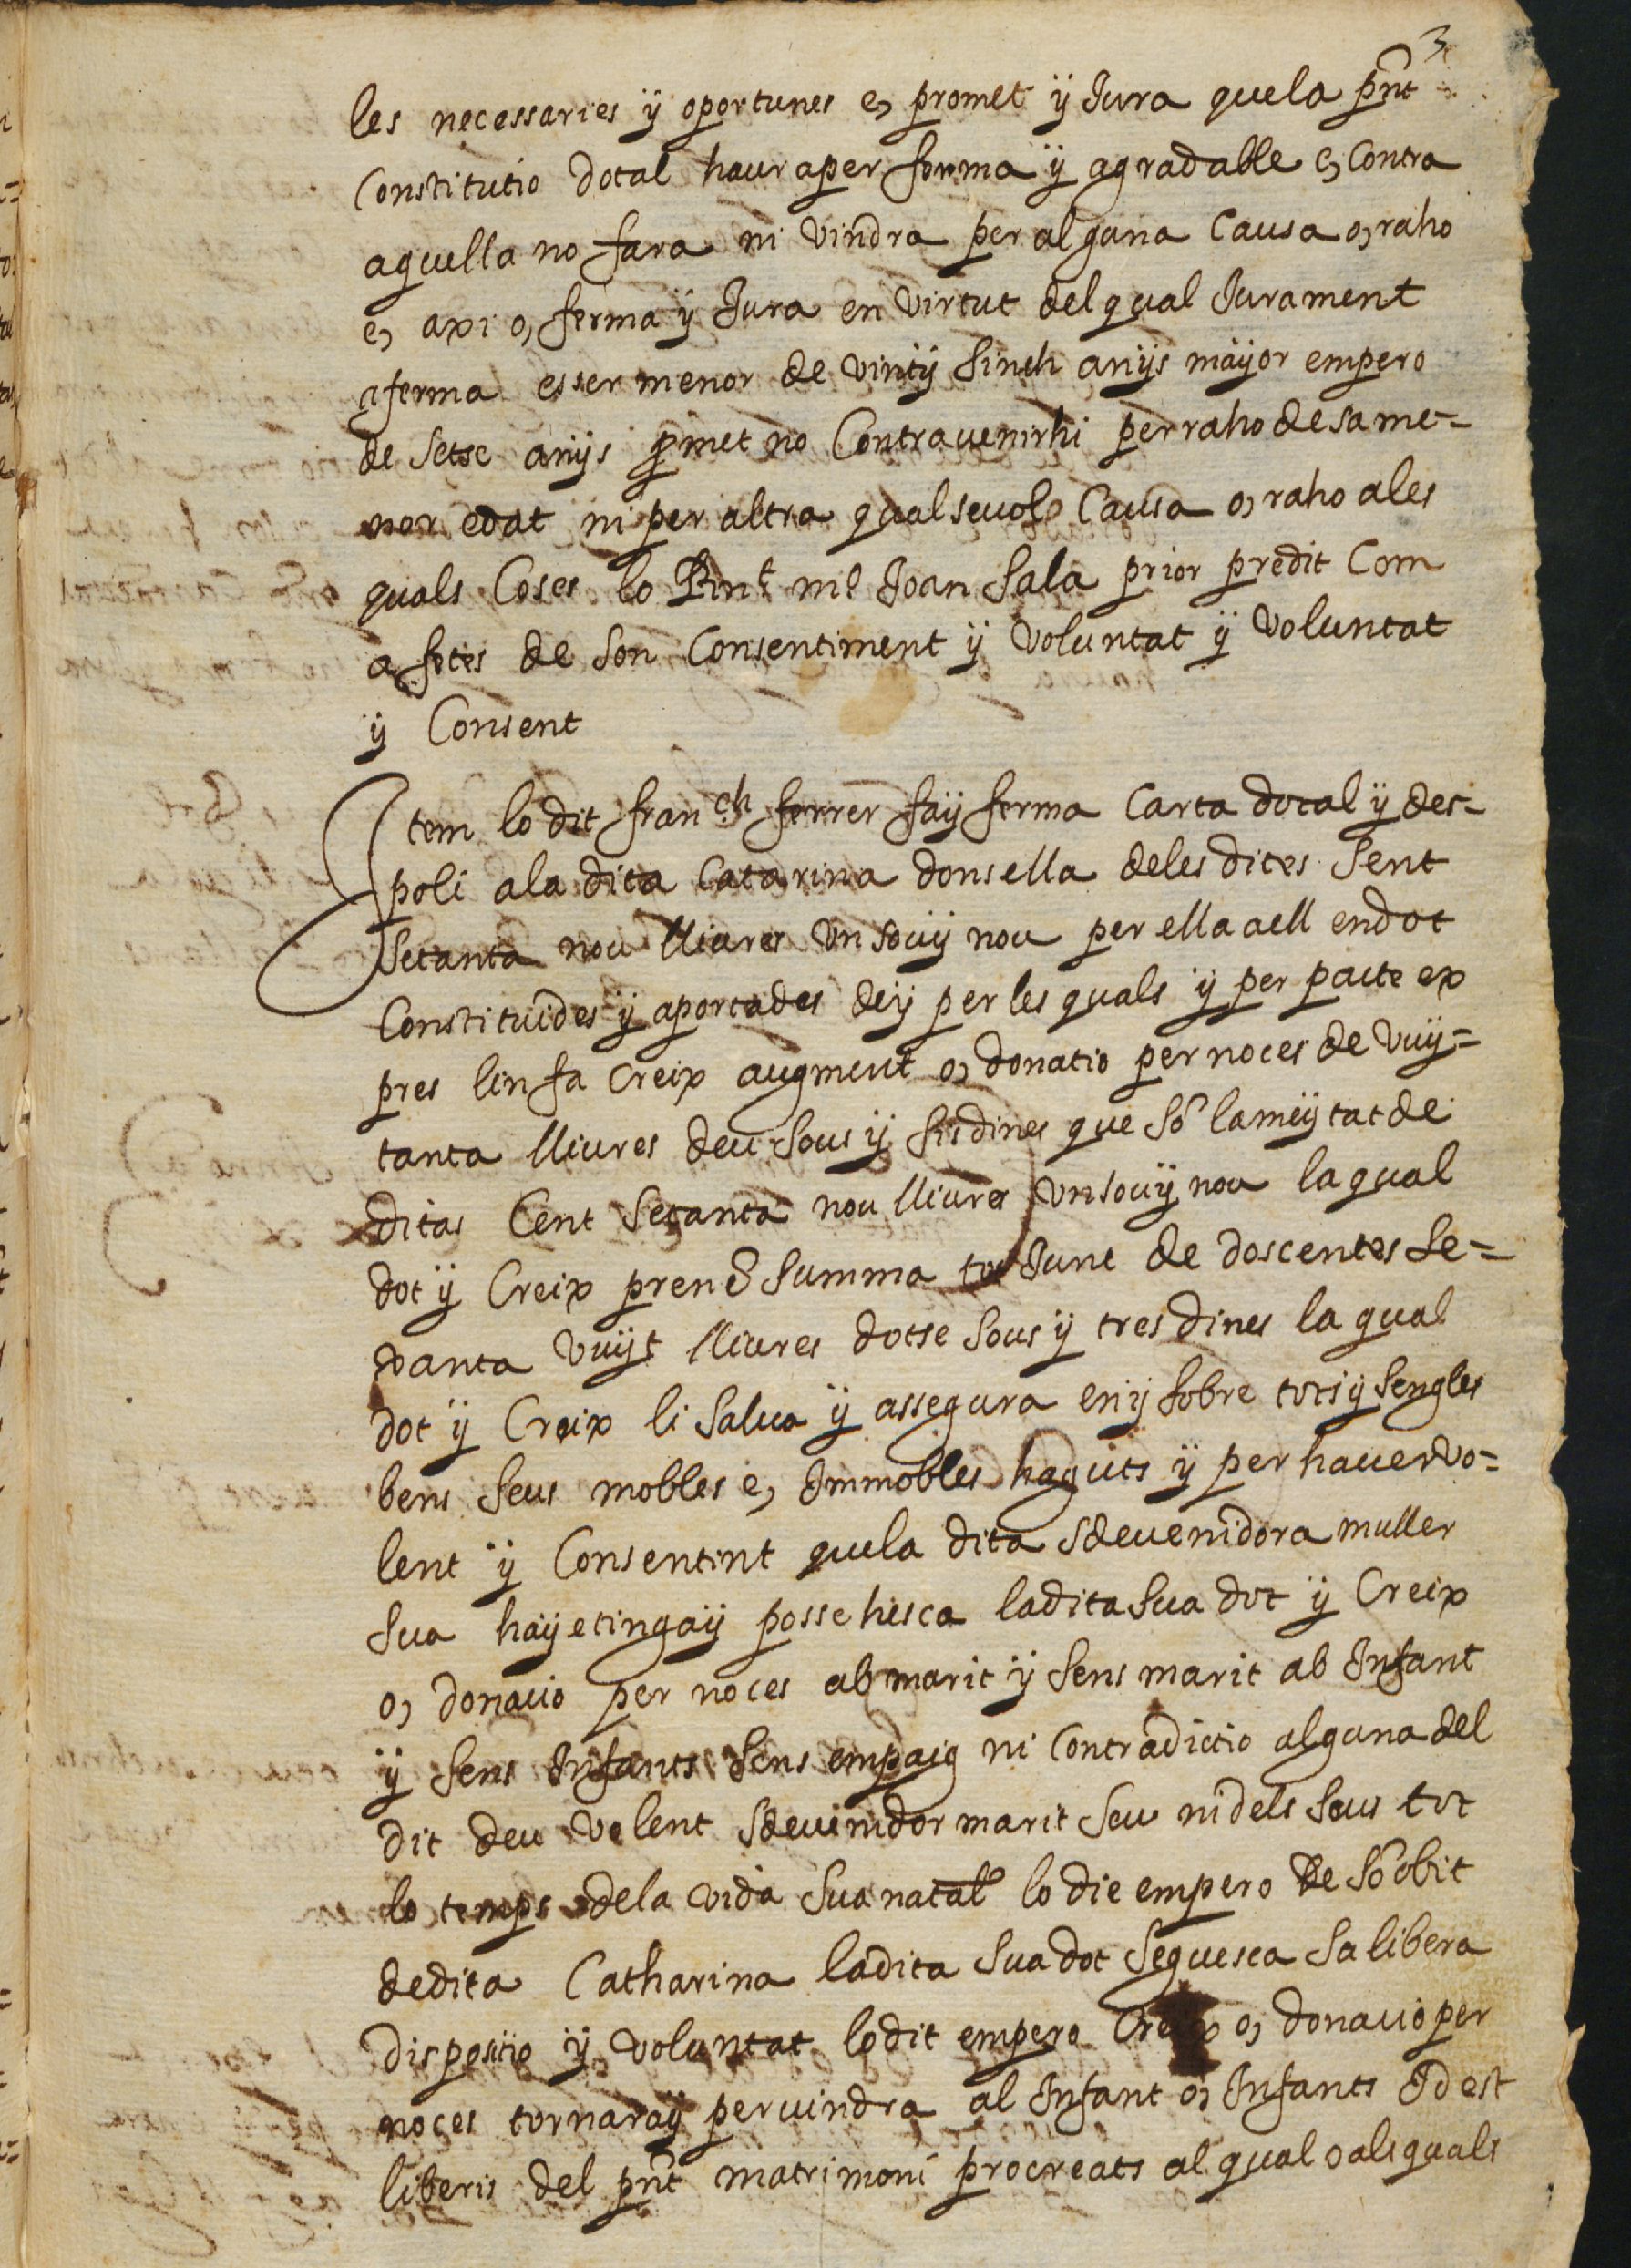 3
les necessaries ÿ oportunes e, promet ÿ Jura quela pñt
Constitutio dotal haura per ferma ÿ agradable e, Contra
aquella no fara ni vindra per alguna Causa o, raho
e, axi o, ferma ÿ Jura en virtut del qual Jurament
aferma esser menor de vintÿ Sinch anÿs mayor empero
de Setse anÿs pmet no Contrauenirhi per raho de sa me=
nor edat ni per altra qualseuol Causa o, raho ales
quals Coses lo Joan Sala prior predit Com
a fetes de Son Consentiment ÿ voluntat ÿ voluntat
ÿ Consent
Item lo dit franch ferrer faÿ ferma Carta dotal ÿ des=
poli ala dita Catarina donsella deles dites Sent
Setanta nou lliures Vn souÿ nou per ella a ell en dot
Constituides ÿ aportades deÿ per les quals ÿ per pacte ex
pres lin fa Creix augment o, donatio per noces de vuÿ=
tanta lliures deu Sous ÿ sis dines que Sõ la meÿtat de
ditas Cent Setanta nou lliures Vn souÿ nou la qual
dot ÿ Creix pren Summa tot Junt de doscentes Se=
xanta vuÿt lliures dotse Sous ÿ tres dines la qual
dot ÿ Creix li Salua ÿ assegura en ÿ Sobre tots ÿ Sengles
bens Seus mobles e, Immobles haguts ÿ per hauer vo=
lent ÿ Consentint quela dita Sdeuenidora muller
Sua haÿe tingaÿ possehisca ladita Sua dot ÿ Creix
o, donacio per noces ab marit ÿ Sens marit ab Infant
ÿ Sens Infants Sens empaig ni Contradictio alguna del
dit deu volent Sdeuenidor marit Seu ni dels Seus tot
lo temps dela vida Sua natal lo die empero de Sõ obit
dedita Catharina ladita Sua dot Seguesca Sa libera
dispositio ÿ voluntat lo dit empero Creix o, donacio per
noces tornaraÿ peruindra al Infant o, Infants Id est
liberis del pñt matrimoni procreats al qual o als quals